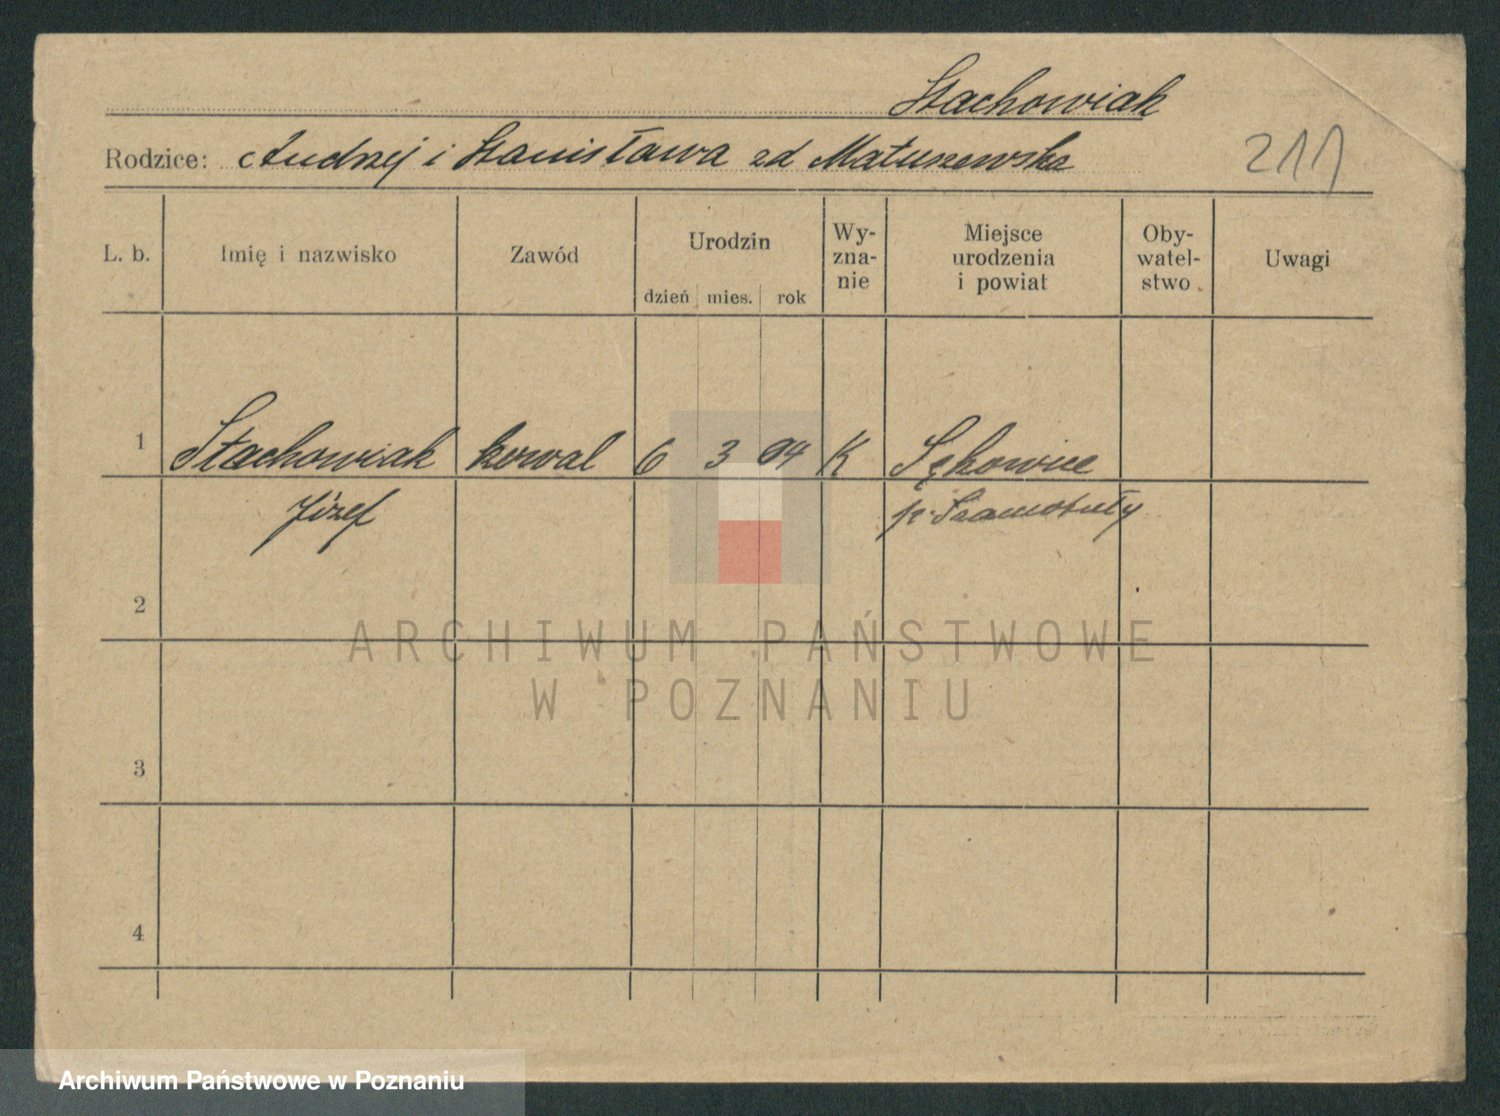 Stachowiak
Rodzice: Andrzej i Stanisława zd Matuszewska
211
L. b. Imię i nazwisko Zawód Urodzin dzień mies. rok Wy-zna-nie Miejsce urodzenia i powiat Oby-watel-stwo Uwagi
1 Stachowiak kowal 6 3 04 K Sękowice
Józef p. Szamotuły
2
3
4
ARCHIWUM PAŃSTWOWE
W POZNANIU
Archiwum Państwowe w Poznaniu